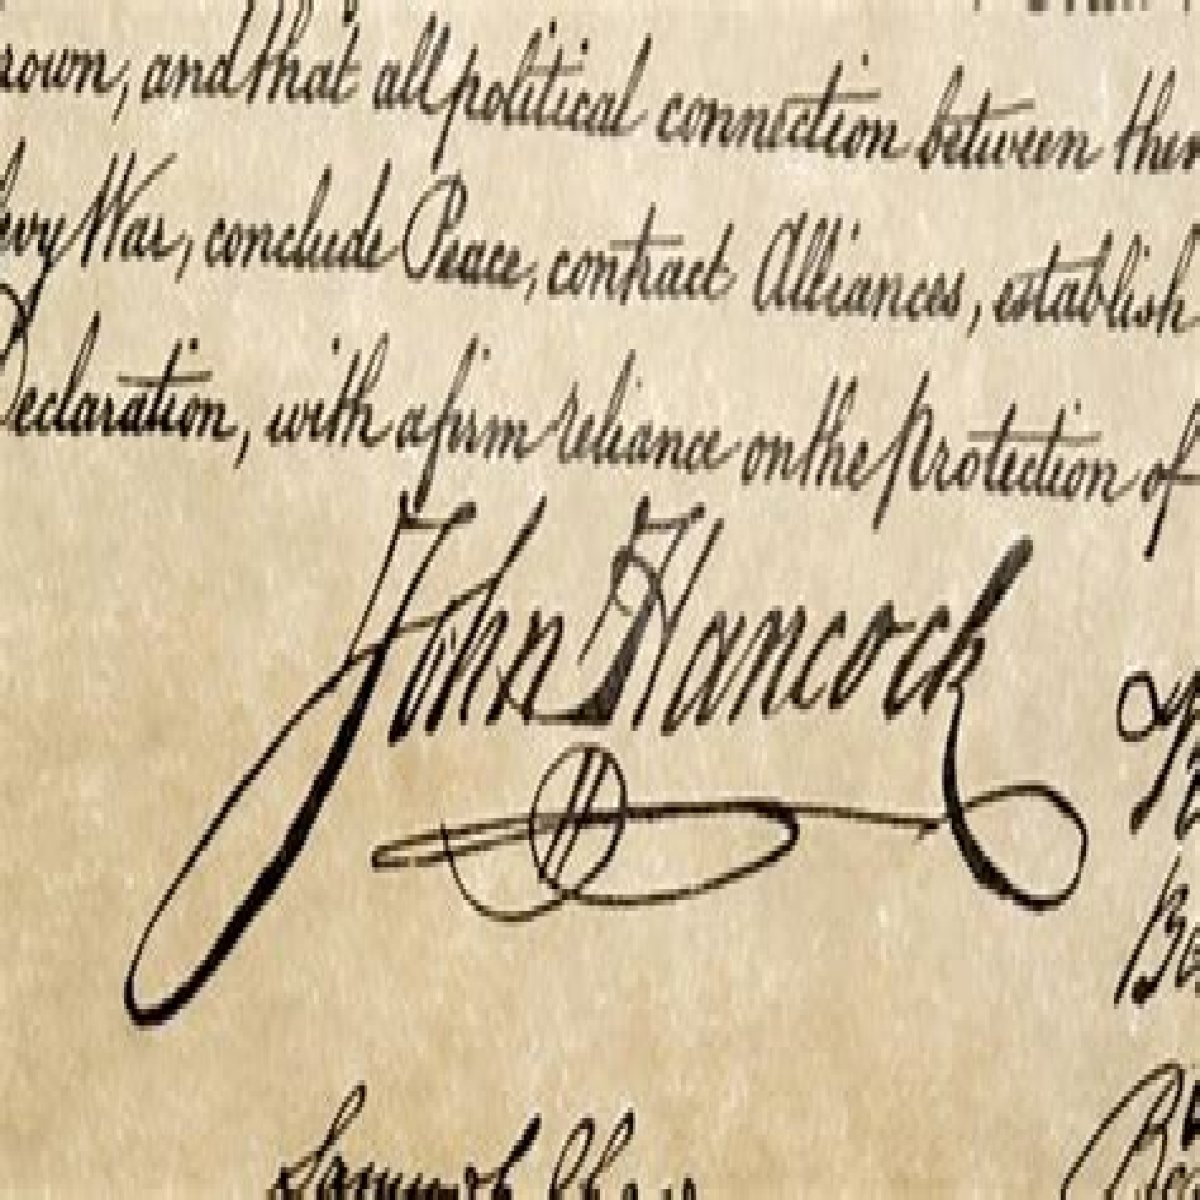 rown, and that all political connection between them
levy War, conclude Peace, contract Alliances, establish
Declaration, with a firm reliance on the protection of
John Hancock